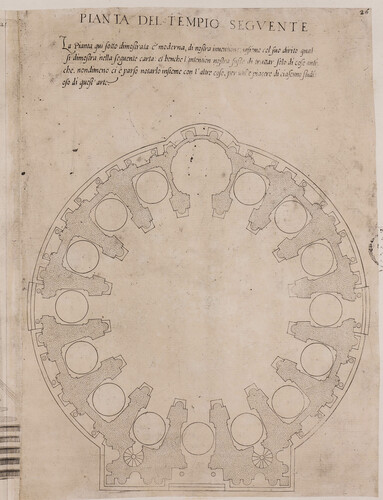 26
PIANTA DEL TEMPIO SEGVENTE
La Pianta qui sotto dimostrata è moderna, di nostra inventione insieme col suo diritto qual
si dimostra nella seguente carta: et benche l'intention nostra fusse di trattar solo di cose anti
che, nondimeno ci è parso notarlo insieme con l'altre cose, per utile e piacere di ciascuno studi
oso di quest'arte